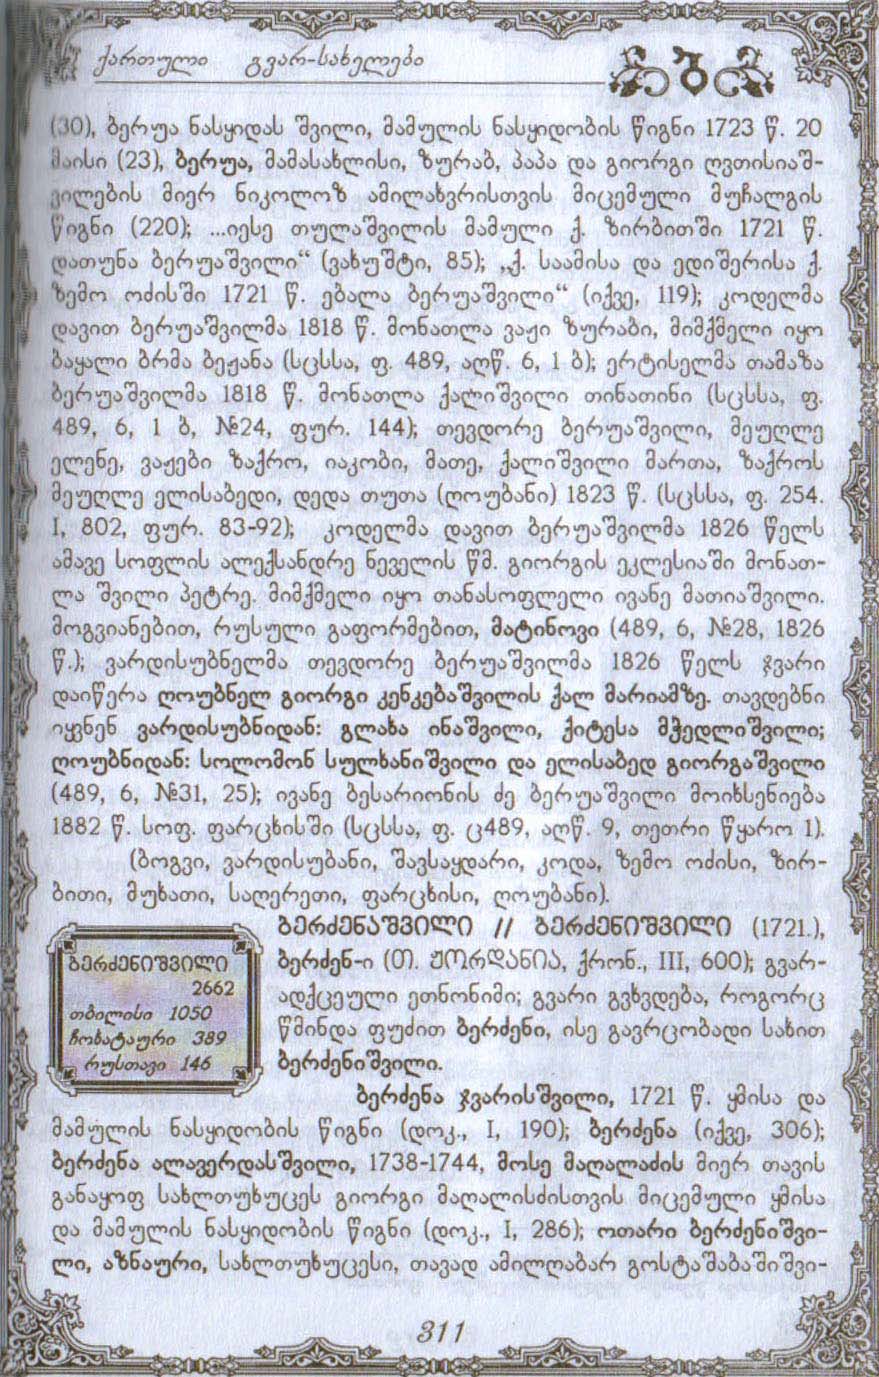 ქართული გვარ-სახელები
(30), ბერუა ნასყიდას შვილი, მამულის ნასყიდობის წიგნი 1723 წ. 20
მაისი (23), ბერუა, მამასახლისი, ზურაბ, პაპა და გიორგი ღვთისიაშ-
ვილების მიერ ნიკოლოზ ამილახვრისთვის მიცემული მუჩალგის
წიგნი (220); ...იესე თულაშვილის მამული ქ. ზირბითში 1721 წ.
დათუნა ბერუაშვილი“ (ვახუშტი, 85); „ქ. საამისა და ედიშერისა ქ.
ზემო ოძისში 1721 წ. ებალა ბერუაშვილი“ (იქვე, 119); კოდელმა
დავით ბერუაშვილმა 1818 წ. მონათლა ვაჟი ზურაბი, მიმქმელი იყო
ბაყალი ბრმა ბეჟანა (სცსსა, ფ. 489, აღწ. 6, 1 ბ); ერტისელმა თამაზა
ბერუაშვილმა 1818 წ. მონათლა ქალიშვილი თინათინი (სცსსა, ფ.
489, 6, 1 ბ, №24, ფურ. 144); თევდორე ბერუაშვილი, მეუღლე
ელენე, ვაჟები ზაქრო, იაკობი, მათე, ქალიშვილი მართა, ზაქროს
მეუღლე ელისაბედი, დედა თუთა (ღოუბანი) 1823 წ. (სცსსა, ფ. 254.
I, 802, ფურ. 83-92); კოდელმა დავით ბერუაშვილმა 1826 წელს
ამავე სოფლის ალექსანდრე ნეველის წმ. გიორგის ეკლესიაში მონათ-
ლა შვილი პეტრე. მიმქმელი იყო თანასოფლელი ივანე მათიაშვილი.
მოგვიანებით, რუსული გაფორმებით, მატინოვი (489, 6, №28, 1826
წ.); ვარდისუბნელმა თევდორე ბერუაშვილმა 1826 წელს ჯვარი
დაიწერა ღოუბნელ გიორგი კენკებაშვილის ქალ მარიამზე. თავდებნი
იყვნენ ვარდისუბნიდან: გლახა ინაშვილი, ქიტესა მჭედლიშვილი;
ღოუბნიდან: სოლომონ სულხანიშვილი და ელისაბედ გიორგაშვილი
(489, 6, №31, 25); ივანე ბესარიონის ძე ბერუაშვილი მოიხსენიება
1882 წ. სოფ. ფარცხისში (სცსსა, ფ. ც489, აღწ. 9, თეთრი წყარო 1).
(ბოგვი, ვარდისუბანი, შავსაყდარი, კოდა, ზემო ოძისი, ზირ-
ბითი, მუხათი, საღერეთი, ფარცხისი, ღოუბანი).
ბერძენაშვილი // ბერძენიშვილი (1721.),
ბერძენ-ი (თ. ჟორდანია, ქრონ., III, 600); გვარ-
ადქცეული ეთნონიმი; გვარი გვხვდება, როგორც
წმინდა ფუძით ბერძენი, ისე გავრცობადი სახით
ბერძენიშვილი.
ბერძენიშვილი
2662
თბილისი 1050
ჩოხატაური 389
რუსთავი 146
ბერძენა ჯვარისშვილი, 1721 წ. ყმისა და
მამულის ნასყიდობის წიგნი (დოკ., I, 190); ბერძენა (იქვე, 306);
ბერძენა ალავერდასშვილი, 1738-1744, მოსე მაღალაძის მიერ თავის
განაყოფ სახლთუხუცეს გიორგი მაღალისძისთვის მიცემული ყმისა
და მამულის ნასყიდობის წიგნი (დოკ., I, 286); ოთარი ბერძენიშვი-
ლი, აზნაური, სახლთუხუცესი, თავად ამილღაბარ გოსტაშაბაშიშვი-
311